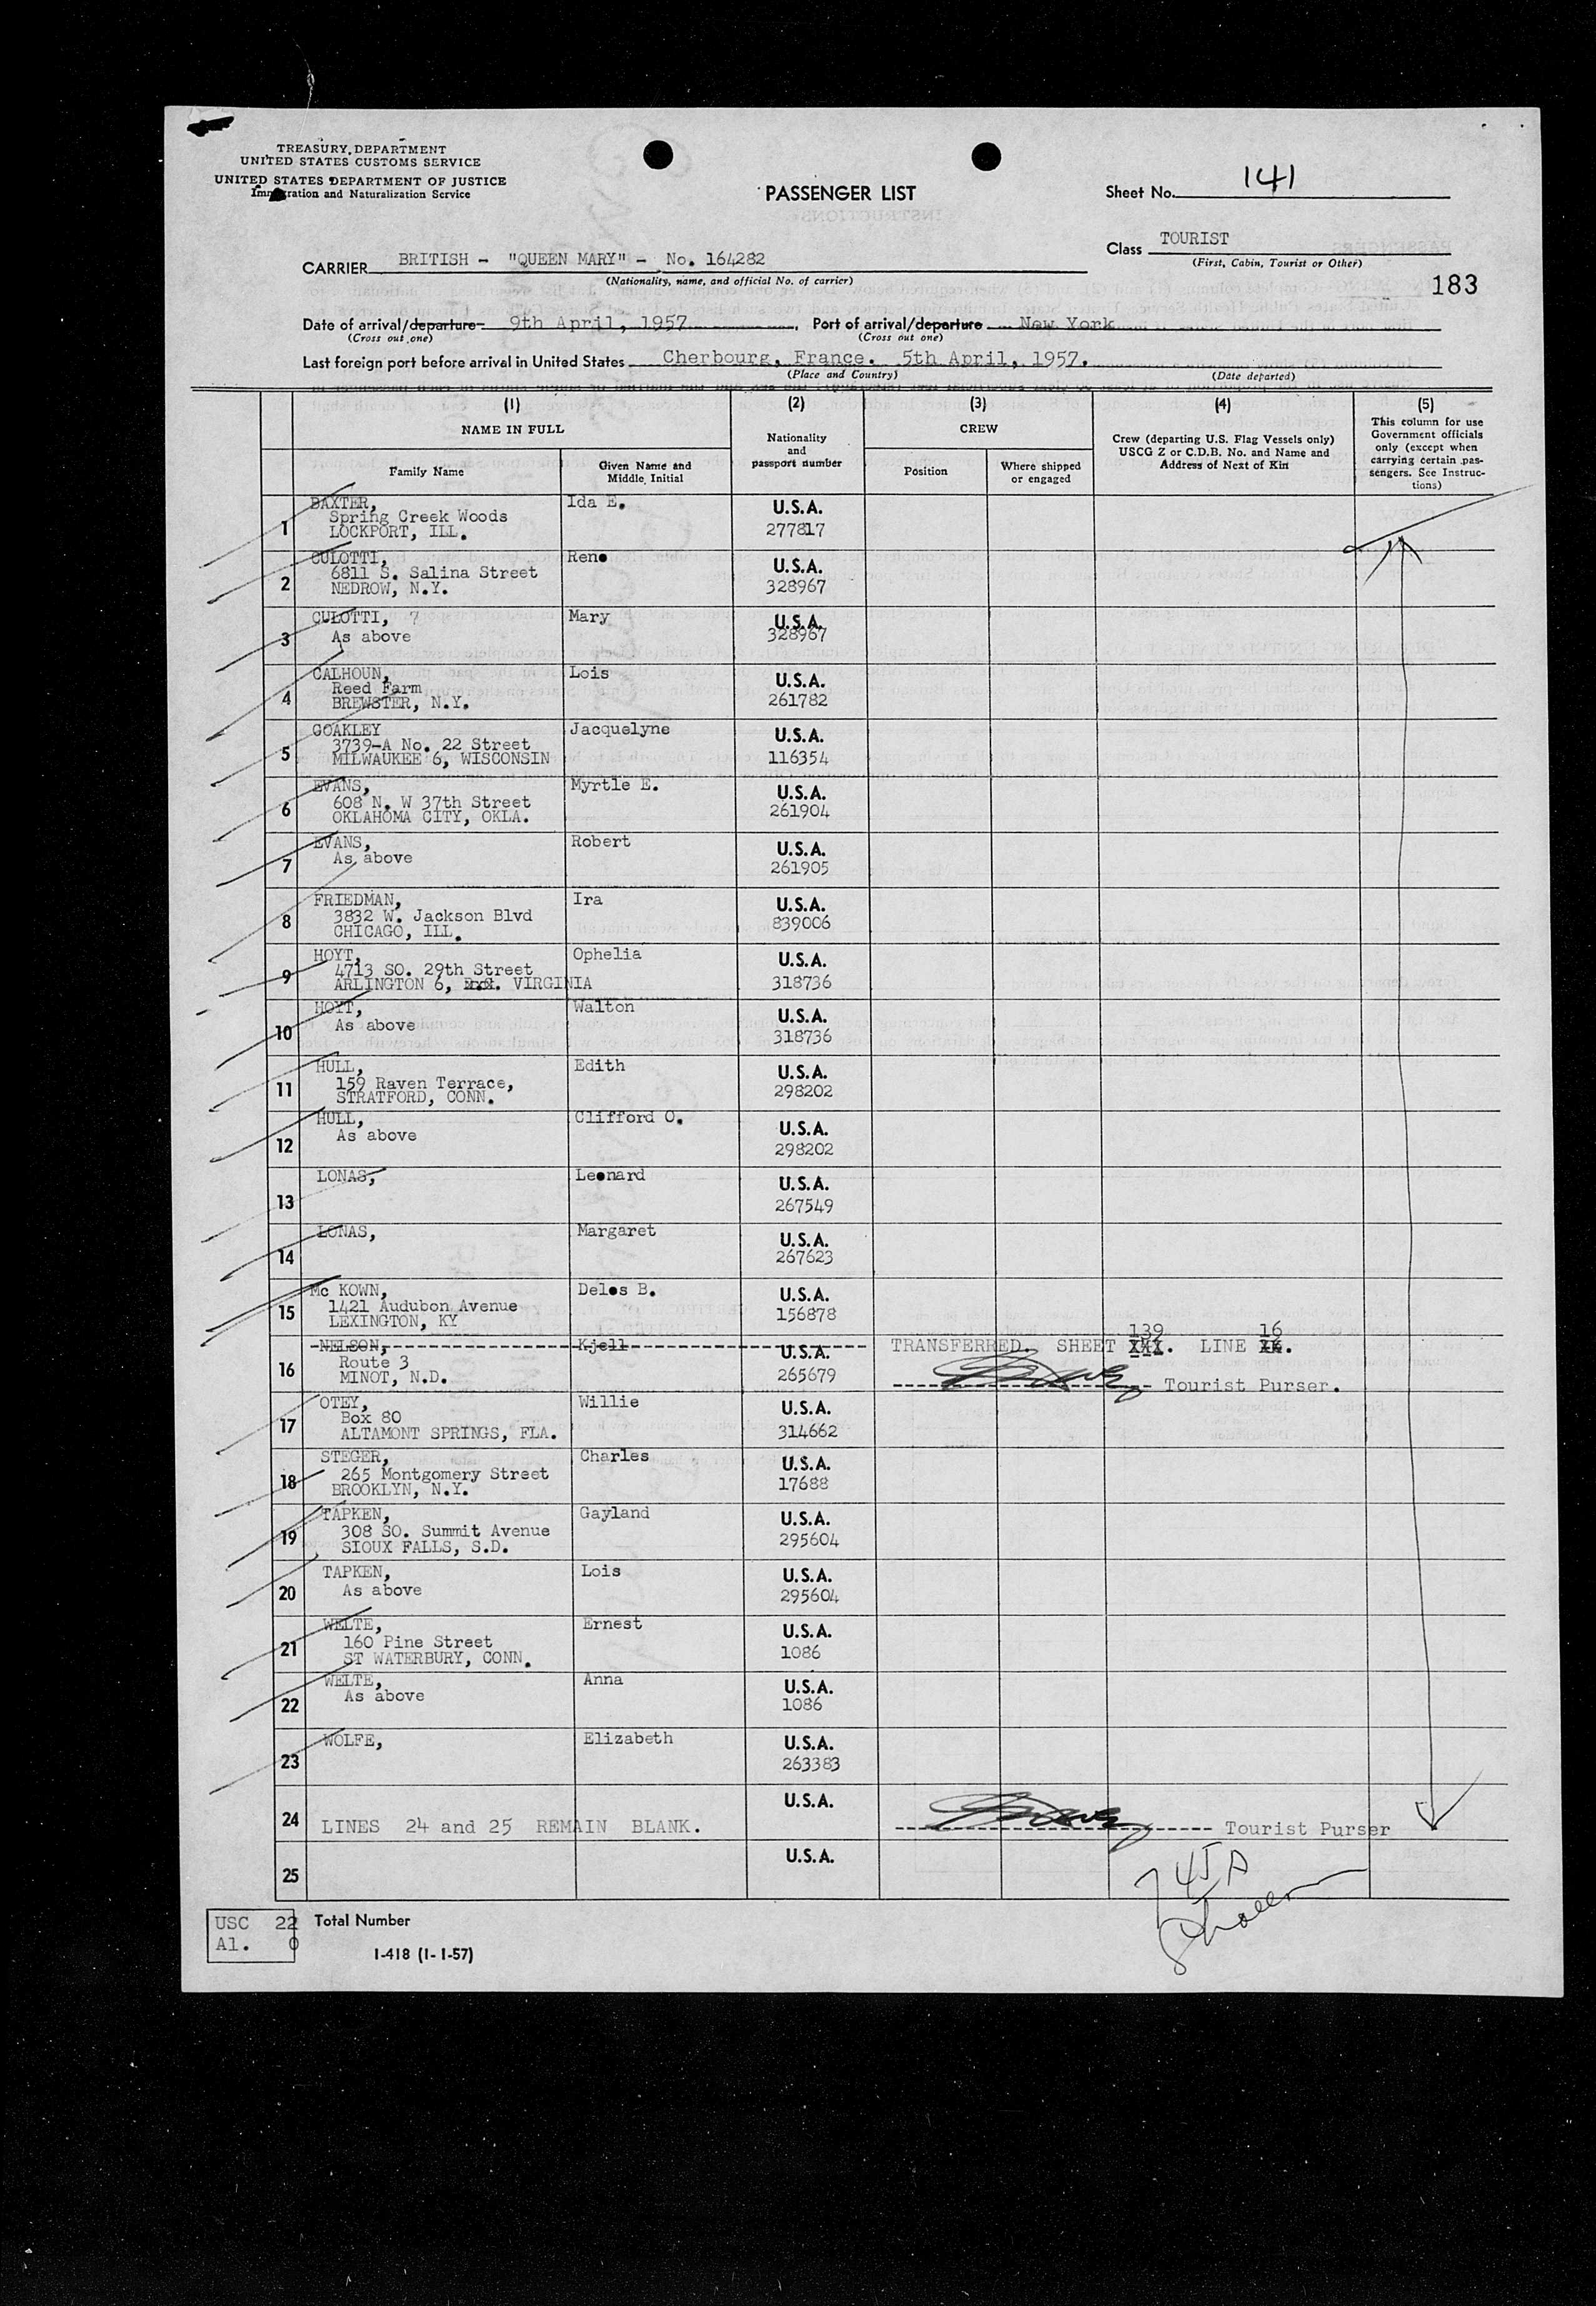 TREASURY DEPARTMENT
UNITED STATES CUSTOMS SERVICE
UNITED STATES DEPARTMENT OF JUSTICE
Immigration and Naturalization Service
PASSENGER LIST
Sheet No. 141
Class TOURIST
(First, Cabin, Tourist or Other)
CARRIER BRITISH - "QUEEN MARY" - No. 164282
(Nationality, name, and official No. of carrier)
183
Date of arrival/departure 9th April, 1957 , Port of arrival/departure New York
(Cross out one) (Cross out one)
Last foreign port before arrival in United States Cherbourg, France. 5th April, 1957.
(Place and Country) (Date departed)
(1) (2) (3) (4) (5)
NAME IN FULL
Family Name
Given Name and Middle Initial
Nationality and passport number
CREW
Position
Where shipped or engaged
Crew (departing U.S. Flag Vessels only)
USCG Z or C.D.B. No. and Name and
Address of Next of Kin
This column for use
Government officials
only (except when
carrying certain pas-
sengers. See Instruc-
tions)
1 BAXTER, Ida E. U.S.A.
Spring Creek Woods
LOCKPORT, ILL. 277817
2 CULOTTI, Reno U.S.A.
6811 S. Salina Street
NEDROW, N.Y. 328967
3 CULOTTI, 7 Mary U.S.A.
As above 328967
4 CALHOUN, Lois U.S.A.
Reed Farm
BREWSTER, N.Y. 261782
5 COAKLEY Jacquelyne U.S.A.
3739-A No. 22 Street
MILWAUKEE 6, WISCONSIN 116354
6 EVANS, Myrtle E. U.S.A.
608 N. W 37th Street
OKLAHOMA CITY, OKLA. 261904
7 EVANS, Robert U.S.A.
As above 261905
8 FRIEDMAN, Ira U.S.A.
3832 W. Jackson Blvd
CHICAGO, ILL. 839006
9 HOYT, Ophelia U.S.A.
4713 SO. 29th Street
ARLINGTON 6, VIRGINIA 318736
10 HOYT, Walton U.S.A.
As above 318736
11 HULL, Edith U.S.A.
159 Raven Terrace,
STRATFORD, CONN. 298202
12 HULL, Clifford O. U.S.A.
As above 298202
13 LONAS, Leonard U.S.A.
267549
14 LONAS, Margaret U.S.A.
267623
15 Mc KOWN, Delos B. U.S.A.
1421 Audubon Avenue
LEXINGTON, KY 156878
16 NELSON, Kjell U.S.A. TRANSFERRED. SHEET 139 XXX. LINE 16 XX.
Route 3
MINOT, N.D. 265679 Tourist Purser.
17 OTEY, Willie U.S.A.
Box 80
ALTAMONT SPRINGS, FLA. 314662
18 STEGER, Charles U.S.A.
265 Montgomery Street
BROOKLYN, N.Y. 17688
19 TAPKEN, Gayland U.S.A.
308 SO. Summit Avenue
SIOUX FALLS, S.D. 295604
20 TAPKEN, Lois U.S.A.
As above 295604
21 WELTE, Ernest U.S.A.
160 Pine Street
ST WATERBURY, CONN. 1086
22 WELTE, Anna U.S.A.
As above 1086
23 WOLFE, Elizabeth U.S.A.
263383
24 U.S.A.
LINES 24 and 25 REMAIN BLANK. Tourist Purser
25 U.S.A.
USC 22 Total Number
Al. 0
I-418 (1-1-57)